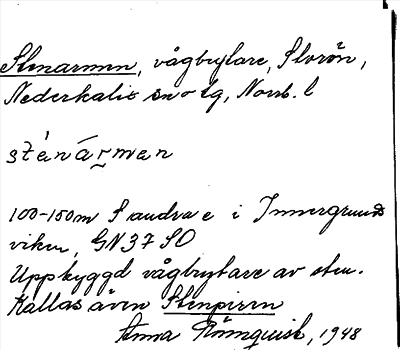 Stenarmen, vågbrytare, Storön,
Nederkalix sn o tg, Norrb. l
sténàrmen
100-150 m S i Innergrunds
viken, GN 37 SO
Uppbyggd vågbrytare av sten.
Kallas även Stenpiren
Anna Rönnquist, 1948